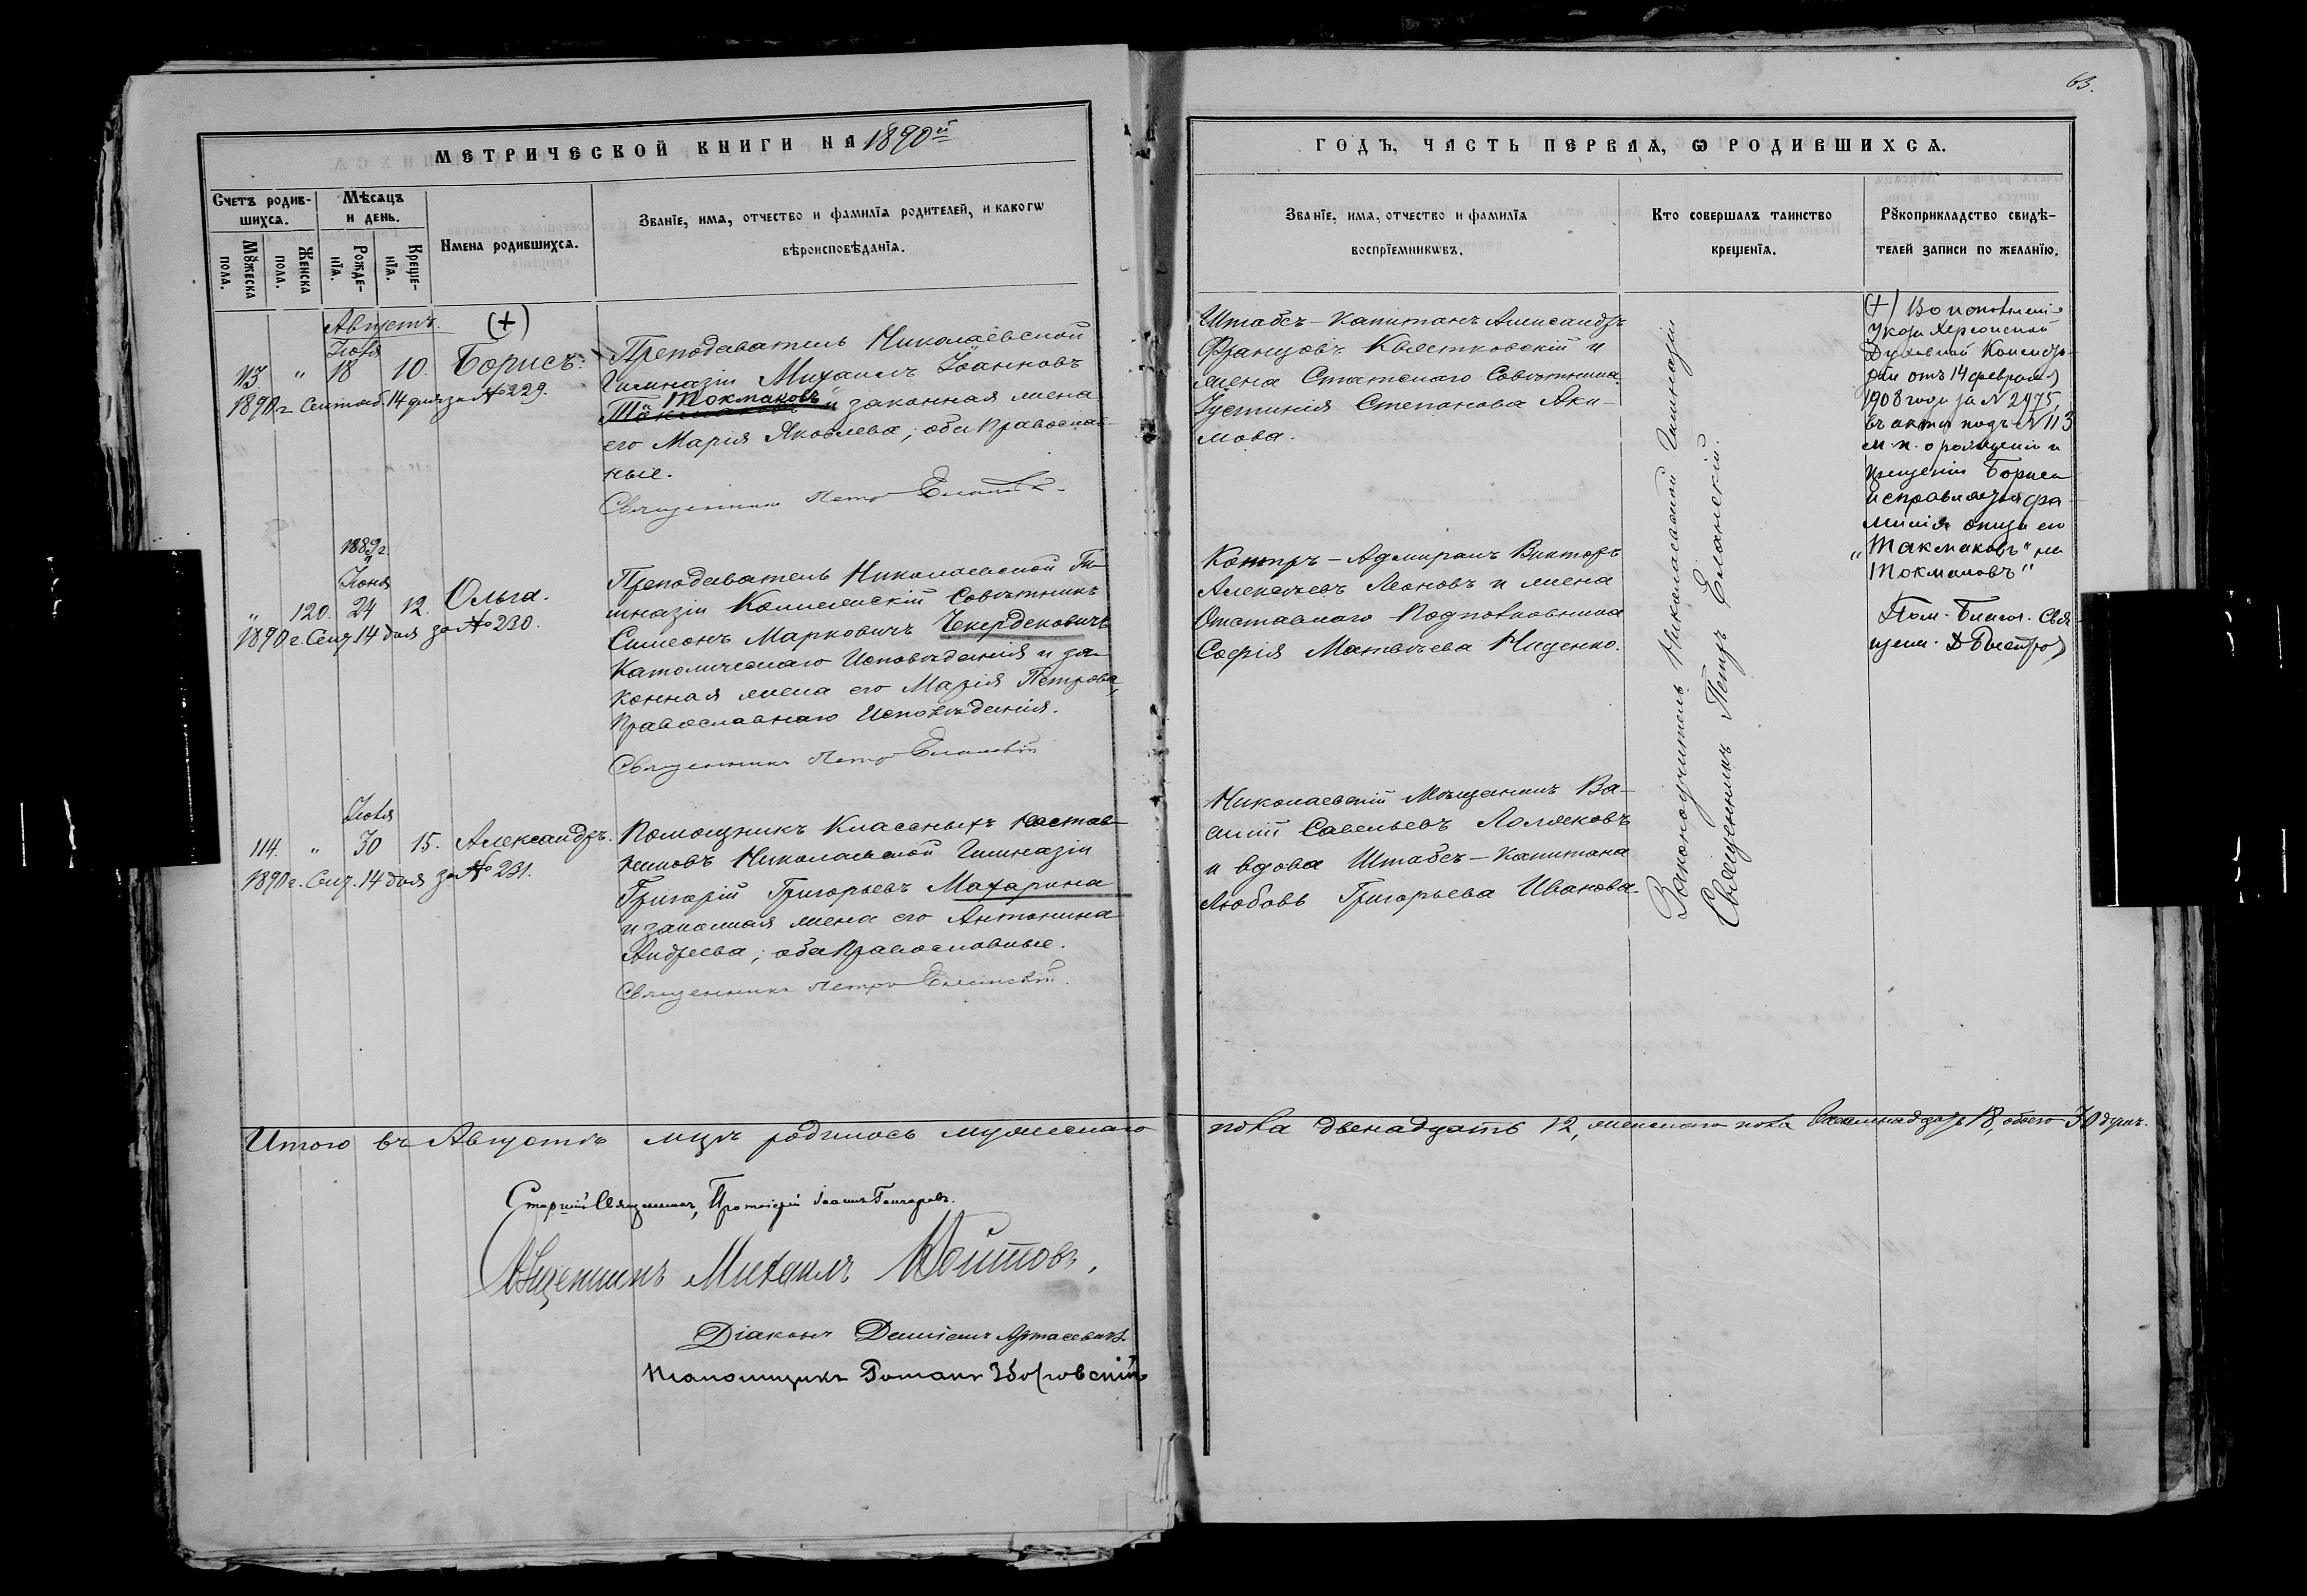 63.
МЕТРИЧЕСКОЙ КНИГИ НА 1890ый
ГОДЪ, ЧАСТЬ ПЕРВАѦ, Ѡ РОДИВШИХСѦ.
Счетъ родив-
шихсѧ.
Мꙋжеска
пола.
Женска
пола.
Мѣсѧцъ
и день.
Рожде-
нїѧ.
Креще-
нїѧ.
Имена родившихсѧ.
Званїе, имѧ, отчество и фамилїѧ родителей, и какогѡ
вѣроисповѣданїѧ.
Званїе, имѧ, отчество и фамилїѧ
воспрїемникѡвъ.
Кто совершалъ таинство
крещенїѧ.
Рꙋкоприкладство свидѣ-
телей записи по желанїю.
Августъ.
Іюля
113 " 18 10. Борисъ. (+)
1890 г. Сентяб. 14 дня за № 229.
Преподаватель Николаевской
Гимназіи Михаилъ Іоанновъ
Токмаковъ
и законная жена
его Марія Яковлева, оба Православ-
ные.
Священникъ Петръ Еланскій
Штабсъ-Капитанъ Александръ
Францовъ Квятковскій и
жена Статскаго Совѣтника
Іустинія Степанова Аки-
мова.
(+) Во исполненіе
Указа Херсонской
Духовной Консисто-
ріи отъ 14 февраля
1908 года за № 2975,
въ акте подъ № 113
м. п. о рожденіи и
крещеніи Бориса
исправляется фа-
милія отца его
"Такмаковъ" на
"Токмаковъ"
Пом. Благоч. Свя-
щен.
1889 г.
Іюня
" 120. 24 12. Ольга.
1890 г. Сент. 14 дня за № 230.
Преподаватель Николаевской Ги-
мназіи Коллежскій Совѣтникъ
Симеонъ Марковичъ Чекердековичъ
Католическаго Исповѣданія и за-
конная жена его Марія Петрова,
Православнаго Исповѣданія.
Священникъ Петръ Еланскій
Контръ-Адмиралъ Викторъ
Алексѣевъ Леоновъ и жена
Отставнаго Подполковника
Софія Матвѣева Ниценко.
Іюля
114. " 30 15. Александръ.
1890 г. Сент. 14 дня за № 231.
Помощникъ Класныхъ настав-
никовъ Николаевской Гимназіи
Григорій Григорьевъ Махарина
и законная жена его Антонина
Андреева, оба Православные.
Священникъ Петръ Еланскій.
Николаевскій Мѣщанинъ Ва-
силій Савельевъ Поляковъ
и вдова Штабсъ-Капитана
Любовь Григорьева Иванова.
Законоучитель Николаевской Гимназіи
Священникъ Петръ Еланскій.
Итого въ Августѣ мцѣ родилось мужескаго пола двенадцать 12, женскаго пола восемнадцать 18, обоего 30 душъ.
Старшій Священникъ, Протоіерей Іоаннъ Гончаровъ.
Священникъ Михаилъ
Діаконъ Даміанъ Артасевичъ.
Псаломщикъ Романъ Зборовскій